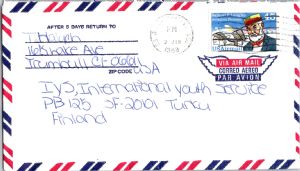 AFTER 5 DAYS RETURN TO
Ave
Trumbull, CT 06611
ZIP CODE USA
PM
1983
USAirmail
VIA AIR MAIL
CORREO AEREO
PAR AVION
IYS, International Youth Service
PB 125 SF-20101 Turku
Finland